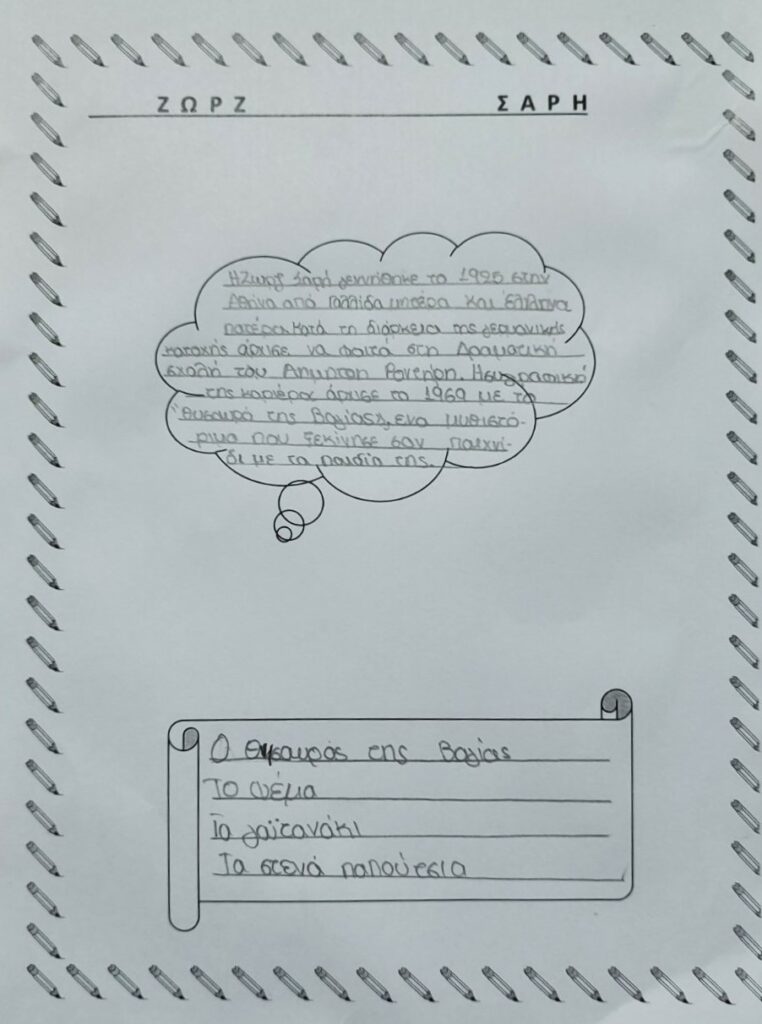 ΖΩΡΖ ΣΑΡΗ
Η Ζωρζ Σαρή γεννήθηκε το 1925 στην
Αθήνα από Γαλλίδα μητέρα και Έλληνα
πατέρα. Κατά τη διάρκεια της γερμανικής
κατοχής άρχισε να φοιτά στη Δραματική
σχολή του Δημήτρη Ροντήρη. Η συγγραφική
της καριέρα άρχισε το 1969 με το
"Θησαυρό της Βαγίας", ένα μυθιστό-
ρημα που ξεκίνησε σαν παιχνί-
δι με τα παιδιά της.
Ο Θησαυρός της Βαγίας
Το ψέμα
Το γαϊτανάκι
Τα στενά παπούτσια